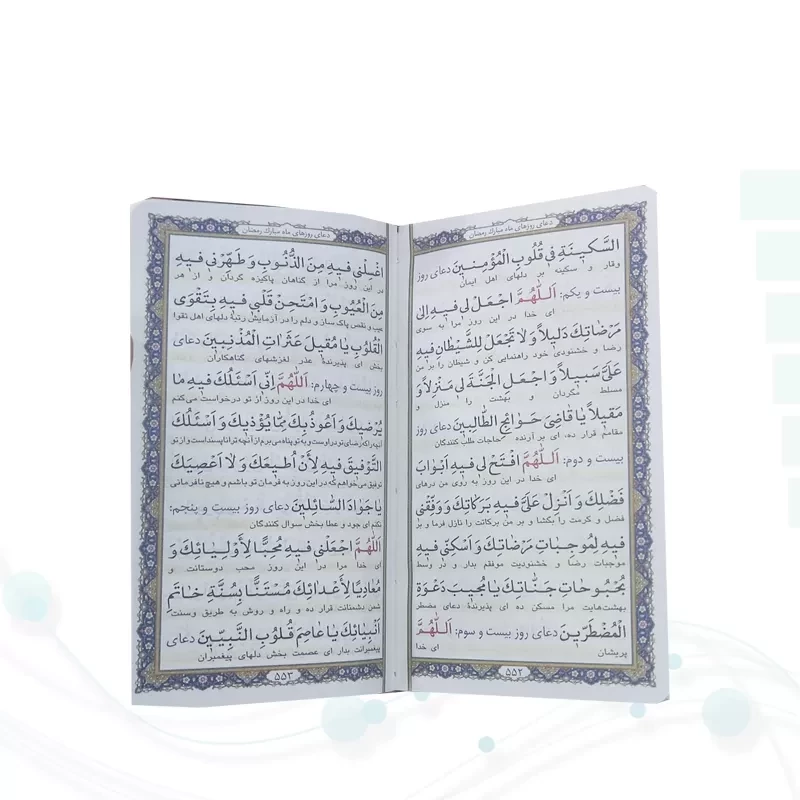 دعای روزهای ماه مبارک رمضان
السَّكينَةِ فى قُلُوبِ الْمُؤْمِنينَ دعای روز
وقار و سکینه بر دلهای اهل ایمان
بیست و یکم: اَللّٰهُمَّ اجْعَلْ لى فيهِ اِلى
ای خدا در این روز مرا به سوی
مَرْضاتِكَ دَليلاً وَ لا تَجْعَلْ لِلشَّيْطانِ فيهِ
رضا و خشنودی خود راهنمایی کن و شیطان را بر من
عَلَىَّ سَبيلاً وَ اجْعَلِ الْجَنَّةَ لى مَنْزِلاً وَ
مسلط مگردان و بهشت را منزل و
مَقيلاً يا قاضِىَ حَوائِجِ الطّالِبينَ دعای روز
مقامم قرار ده، ای برآرنده حاجات طلب کنندگان
بیست و دوم: اَللّٰهُمَّ افْتَحْ لى فيهِ اَبْوابَ
ای خدا در این روز به روی من درهای
فَضْلِكَ وَ اَنْزِلْ عَلَىَّ فيهِ بَرَكاتِكَ وَ وَفِّقْنى
فضل و کرمت را بگشا و بر من برکاتت را نازل فرما و بر
فيهِ لِمُوجِباتِ مَرْضاتِكَ وَ اَسْكِنّى فيهِ
موجبات رضا و خشنودیت موفقم بدار و در وسط
بُحْبُوحاتِ جَنّاتِكَ يا مُجيبَ دَعْوَةِ
بهشت‌هایت مرا مسکن ده ای پذیرندهٔ دعای مضطر
الْمُضْطَرّينَ دعای روز بیست و سوم: اَللّٰهُمَّ
پریشان ای خدا
۵۵۲
دعای روزهای ماه مبارک رمضان
اغْسِلْنى فيهِ مِنَ الذُّنُوبِ وَ طَهِّرْنى فيهِ
در این روز مرا از گناهان پاکیزه گردان و از هر
مِنَ الْعُيُوبِ وَ امْتَحِنْ قَلْبى فيهِ بِتَقْوَى
عیب و نقص پاک ساز و دلم را در آزمایش رتبهٔ دلهای اهل تقوا
الْقُلُوبِ يا مُقيلَ عَثَراتِ الْمُذْنِبينَ دعای
بخش ای پذیرندهٔ عذر لغزشهای گناهکاران
روز بیست و چهارم: اَللّٰهُمَّ اِنّى اَسْئَلُكَ فيهِ ما
ای خدا در این روز از تو درخواست می‌کنم
يُرْضيكَ وَ اَعُوذُ بِكَ مِمّا يُؤْذيكَ وَ اَسْئَلُكَ
آنچه را که رضای تو در اوست و به تو پناه می‌برم از آنچه تو را ناپسند است و از تو
التَّوْفيقَ فيهِ لِأَنْ اُطيعَكَ وَ لا اَعْصِيَكَ
توفیق می‌خواهم که در این روز به فرمان تو باشم و هیچ نافرمانی
يا جَوادَ السّائِلينَ دعای روز بیست و پنجم:
نکنم ای جود و عطا بخش سوال کنندگان
اَللّٰهُمَّ اجْعَلْنى فيهِ مُحِبًّا لِأَوْلِيائِكَ وَ
ای خدا مرا در این روز محب دوستانت و
مُعادِيًا لِأَعْدائِكَ مُسْتَنًّا بِسُنَّةِ خاتَمِ
دشمن دشمنانت قرار ده و راه و روش به طریق وسنت
اَنْبِيائِكَ يا عاصِمَ قُلُوبِ النَّبِيّينَ دعای
پیغمبرانت بدار ای عصمت بخش دلهای پیغمبران
۵۵۳